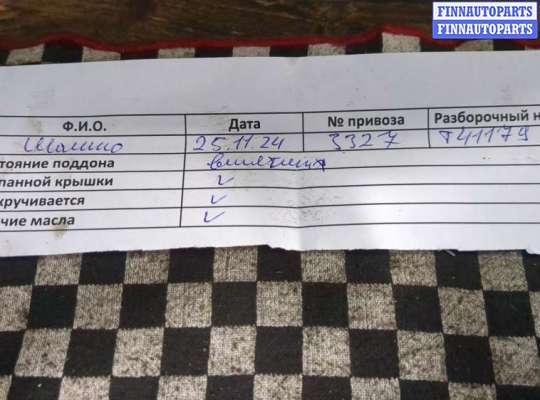 FINNAUTOPARTS
FINNAUTOPARTS
Ф.И.О. Дата № привоза Разборочный н
25.11.24 3327 T41179
тояние поддона
панной крышки ✓
кручивается ✓
чие масла ✓
FINNAUTOPARTS
FINNAUTOPARTS